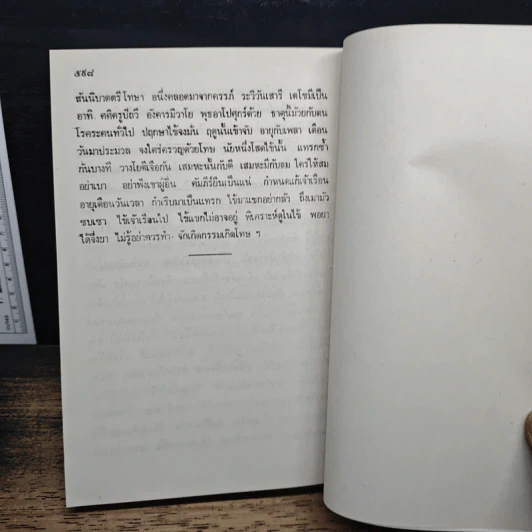 ๕๙๘
สันนิบาตตรีโทษา อนึ่งคลอดมาจากครรภ์ ระวิวันเสารี เตโชมีเป็น
อาทิ ศศิครูปัถวี อังคารมีวาโย พุธอาโปศุกร์ด้วย ธาตุนี้ม้วยกับตน
โรคระคนทั่วไป ปฤกษาไข้จงมั่น ฤดูนั้นเข้าจับ อายุกับเพลา เดือน
วันมาประมวล จงใคร่ครวญด้วยโทษ นัยหนึ่งโสดไข้นั้น แทรกซ้ำ
กันบางที วางโยคีเจือกัน เสมหะนั้นกับดี เสมหะมีกับลม ใครให้สม
อย่าเบา อย่าฟังเขาผู้อื่น คัมภีร์ยืนเป็นแน่ กำหนดแก้เจ้าเรือน
อายุเดือนวันเวลา กำเริบมาเป็นแทรก ไข้มาแขกอย่ากลัว ถึงเมามัว
ซบเซา ไข้เจ้าเรือนไป ไข้แขกไม่อาจอยู่ พิเคราะห์ดูในไข้ พอยา
ได้จึ่งยา ไม่รู้อย่าควรทำ จักเกิดกรรมเกิดโทษ ฯ